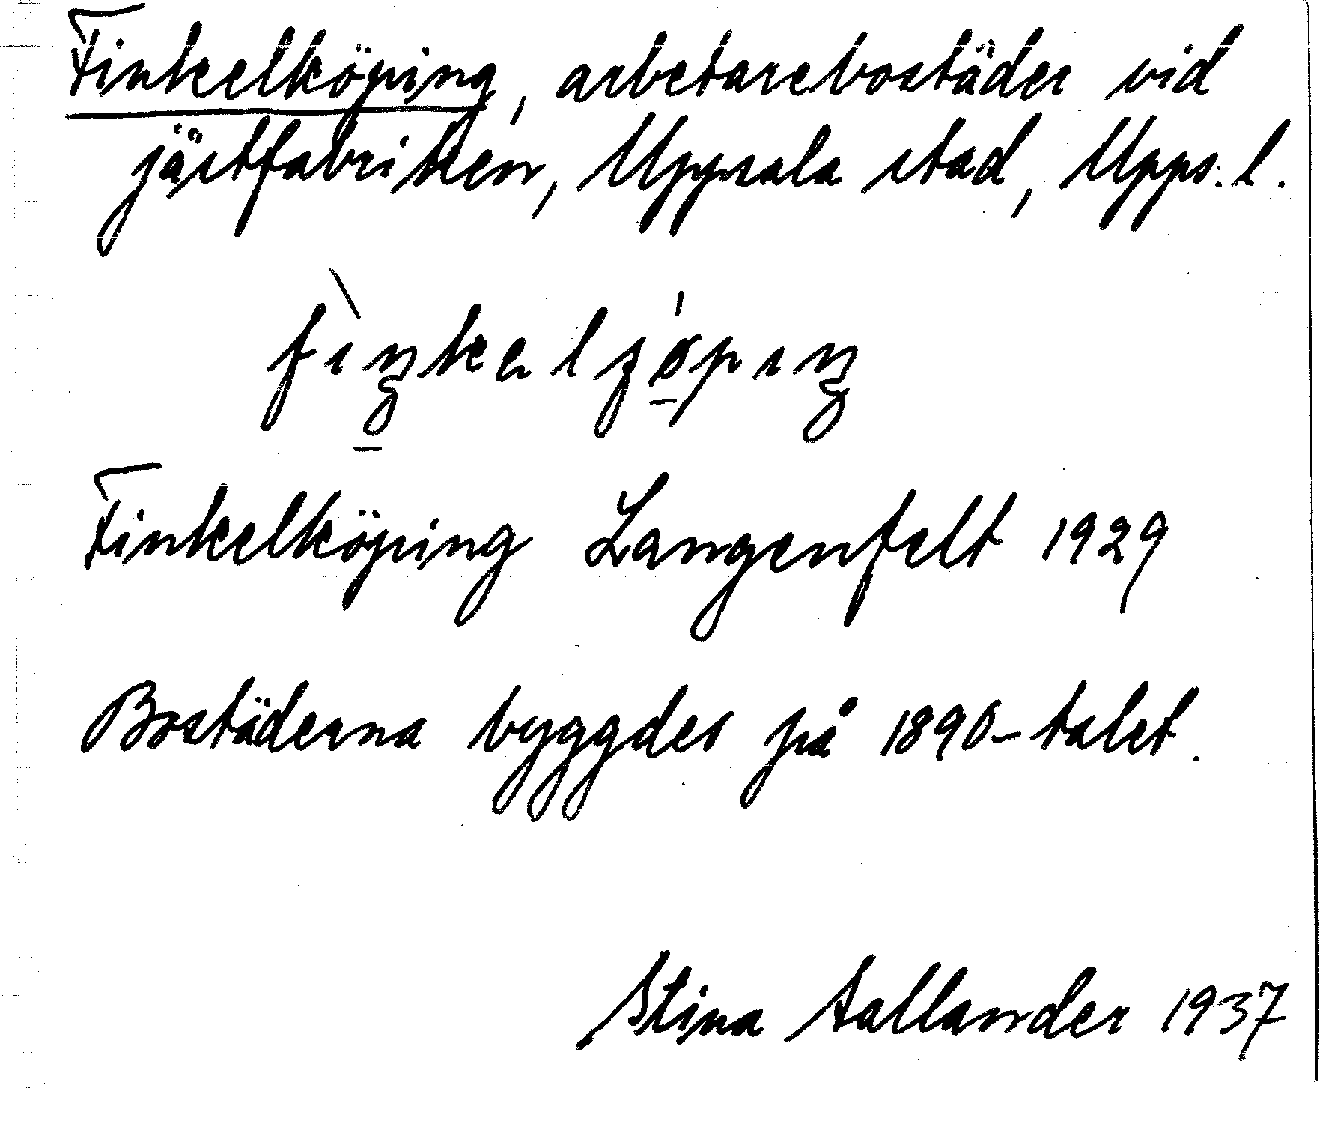 Finkelköping, arbetarebostäder vid
jästfabriken, Uppsala stad, Upps. l.
Finkelköping Langenfelt 1929
Bostäderna byggdes på 1890-talet.
Stina 1937